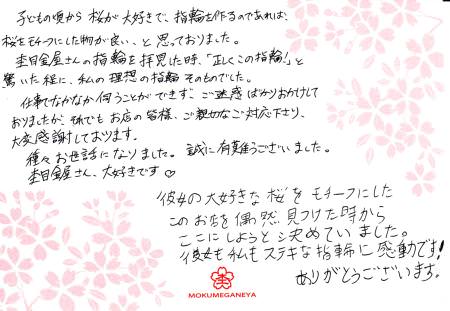 子どもの頃から桜が大好きで、指輪を作るのであれば、
桜をモチーフにした物が良い、と思っておりました。
杢目金屋さんの指輪を拝見した時、「正しくこの指輪！」と
驚いた程に、私の理想の指輪そのものでした。
仕事でなかなか伺うことができず、ご迷惑ばかりおかけして
おりましたが、それでもお店の皆様、ご親切なご対応下さり、
大変感謝しております。
種々お世話になりました。誠に有難うございました。
杢目金屋さん、大好きです♡
彼女の大好きな桜をモチーフにした
このお店を偶然見つけた時から
ここにしようと決めていました。
彼女も私もステキな指輪に感動です！
ありがとうございます。
MOKUMEGANEYA